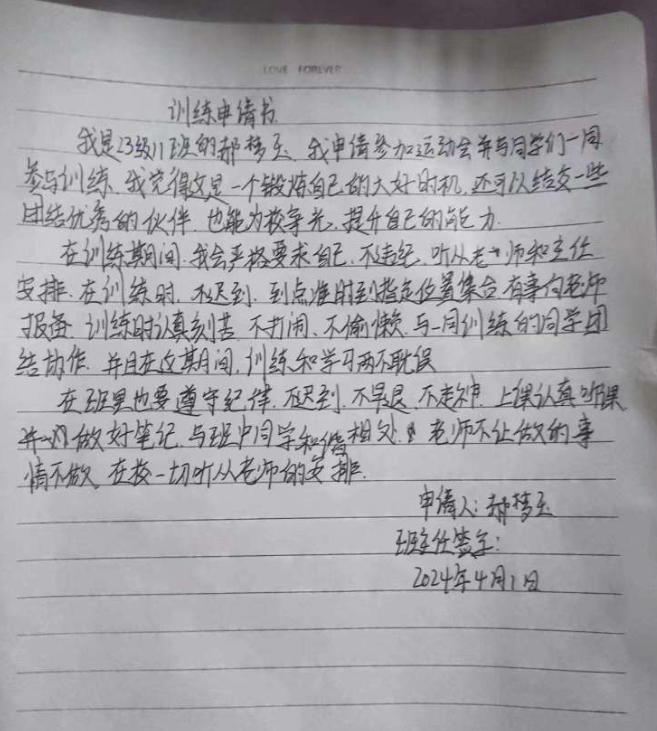 LOVE FOREVER
训练申请书
我是23级11班的郝梦玉 我申请参加运动会并与同学们一同
参与训练 我觉得这是一个锻炼自己的大好时机 还可以结交一些
团结优秀的伙伴 也能为校争光 提升自己的能力
在训练期间 我会严格要求自己 不违纪 听从老师和主任
安排 在训练时 不迟到 到点准时到指定位置集合 有事向老师
报备 训练时认真刻苦 不打闹、不偷懒 与一同训练的同学团
结协作 并且在这期间,训练和学习两不耽误
在班里也要遵守纪律 不迟到 不早退 不走神 上课认真听课
并做好笔记 与班中同学和谐相处 老师不让做的事
情不做 在校一切听从老师的安排.
申请人:郝梦玉
班主任签字:
2024年4月1日